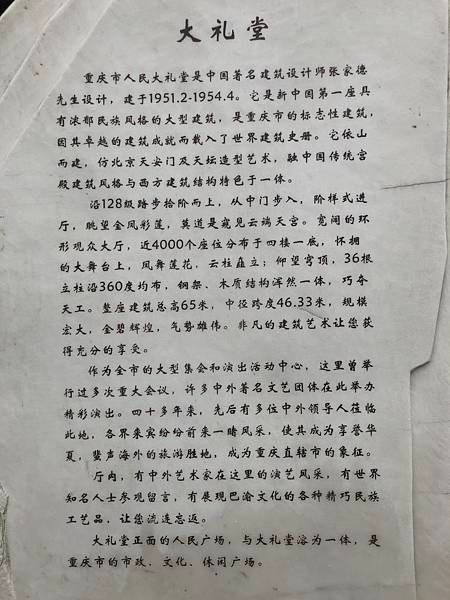 大礼堂
重庆市人民大礼堂是中国著名建筑设计师张家德
先生设计，建于1951.2-1954.4。它是新中国第一座具
有浓郁民族风格的大型建筑，是重庆市的标志性建筑，
因其卓越的建筑成就而载入了世界建筑史册。它依山
而建，仿北京天安门及天坛造型艺术，融中国传统宫
殿建筑风格与西方建筑结构特色于一体。
沿128级踏步拾阶而上，从中门步入，阶样式进
厅，眺望金凤彩莲，莫道是窥见云端天宫。宽阔的环
形观众大厅，近4000个座位分布于四楼一底，怀拥
的大舞台上，凤舞莲花，云柱矗立；仰望穹顶，36根
立柱沿360度均布，钢架、木质结构浑然一体，巧夺
天工。整座建筑总高65米，中径跨度46.33米，规模
宏大，金碧辉煌，气势雄伟。非凡的建筑艺术让您获
得充分的享受。
作为全市的大型集会和演出活动中心，这里曾举
行过多次重大会议，许多中外著名文艺团体在此举办
精彩演出。四十多年来，先后有多位中外领导人莅临
此地，各界来宾纷纷前来一睹风采，使其成为享誉华
夏，蜚声海外的旅游胜地，成为重庆直辖市的象征。
厅内，有中外艺术家在这里的演艺风采，有世界
知名人士参观留言，有展现巴渝文化的各种精巧民族
工艺品，让您流连忘返。
大礼堂正面的人民广场，与大礼堂溶为一体，是
重庆市的市政、文化、休闲广场。